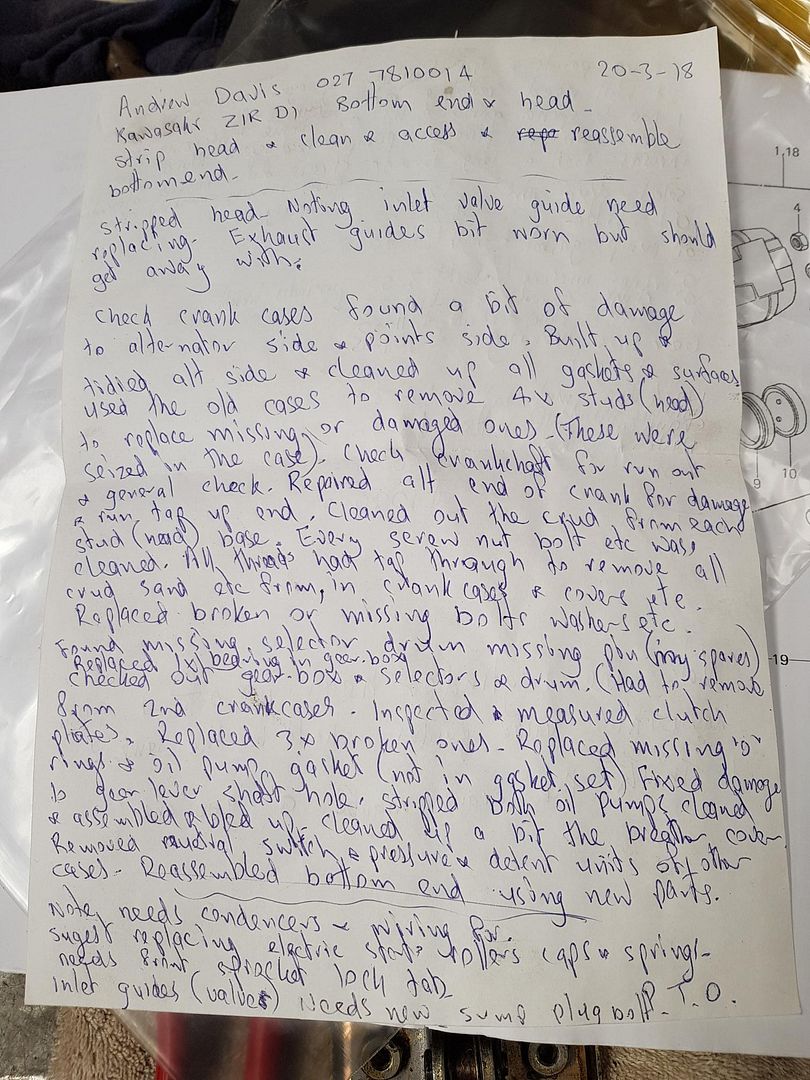 Andrew Davis 027 7810014 20-3-18
Kawasaki Z1R D1 Bottom end & head -
strip head & clean & access & repa reassemble
bottomend -
stripped head - Noting inlet valve guide need
replacing. Exhaust guides bit worn but should
get away with.
Check crank cases found a bit of damage
to alternator side & points side. Built up &
tidied alt side & cleaned up all gaskets & surfaces
used the old cases to remove 4x studs (head)
to replace missing or damaged ones. (These were
seized in the case). Check crankshaft for run out
& general check. Repaired alt end of crank for damage
& run tap up end. Cleaned out the crud from each
stud (head) base. Every screw nut bolt etc was
cleaned. All threads had tap through to remove all
crud sand etc from, in crank cases & covers etc.
Replaced broken or missing bolts washers etc.
Found missing selector drum missing pin (my spares)
Replaced 1x bearing in gear-box
checked out gear-box & selectors & drum. (Had to remove
from 2nd crankcases. Inspected & measured clutch
plates. Replaced 3x broken ones - Replaced missing "o"
rings & oil pump gasket (not in gasket set) Fixed damage
to gear lever shaft hole. stripped both oil pumps cleand
& assembled & bled up. cleaned up a bit the breather cover
Removed nutral switch & pressure & detent units of other
cases - Reassembled bottom end using new parts.
Note, needs condencers & wiring for.
sugest replacing electric start rollers caps & springs -
needs front sprocket lock tab
inlet guides (valves) Needs new sump plug bolt - P.T.O.
1,18
4
9
10
19